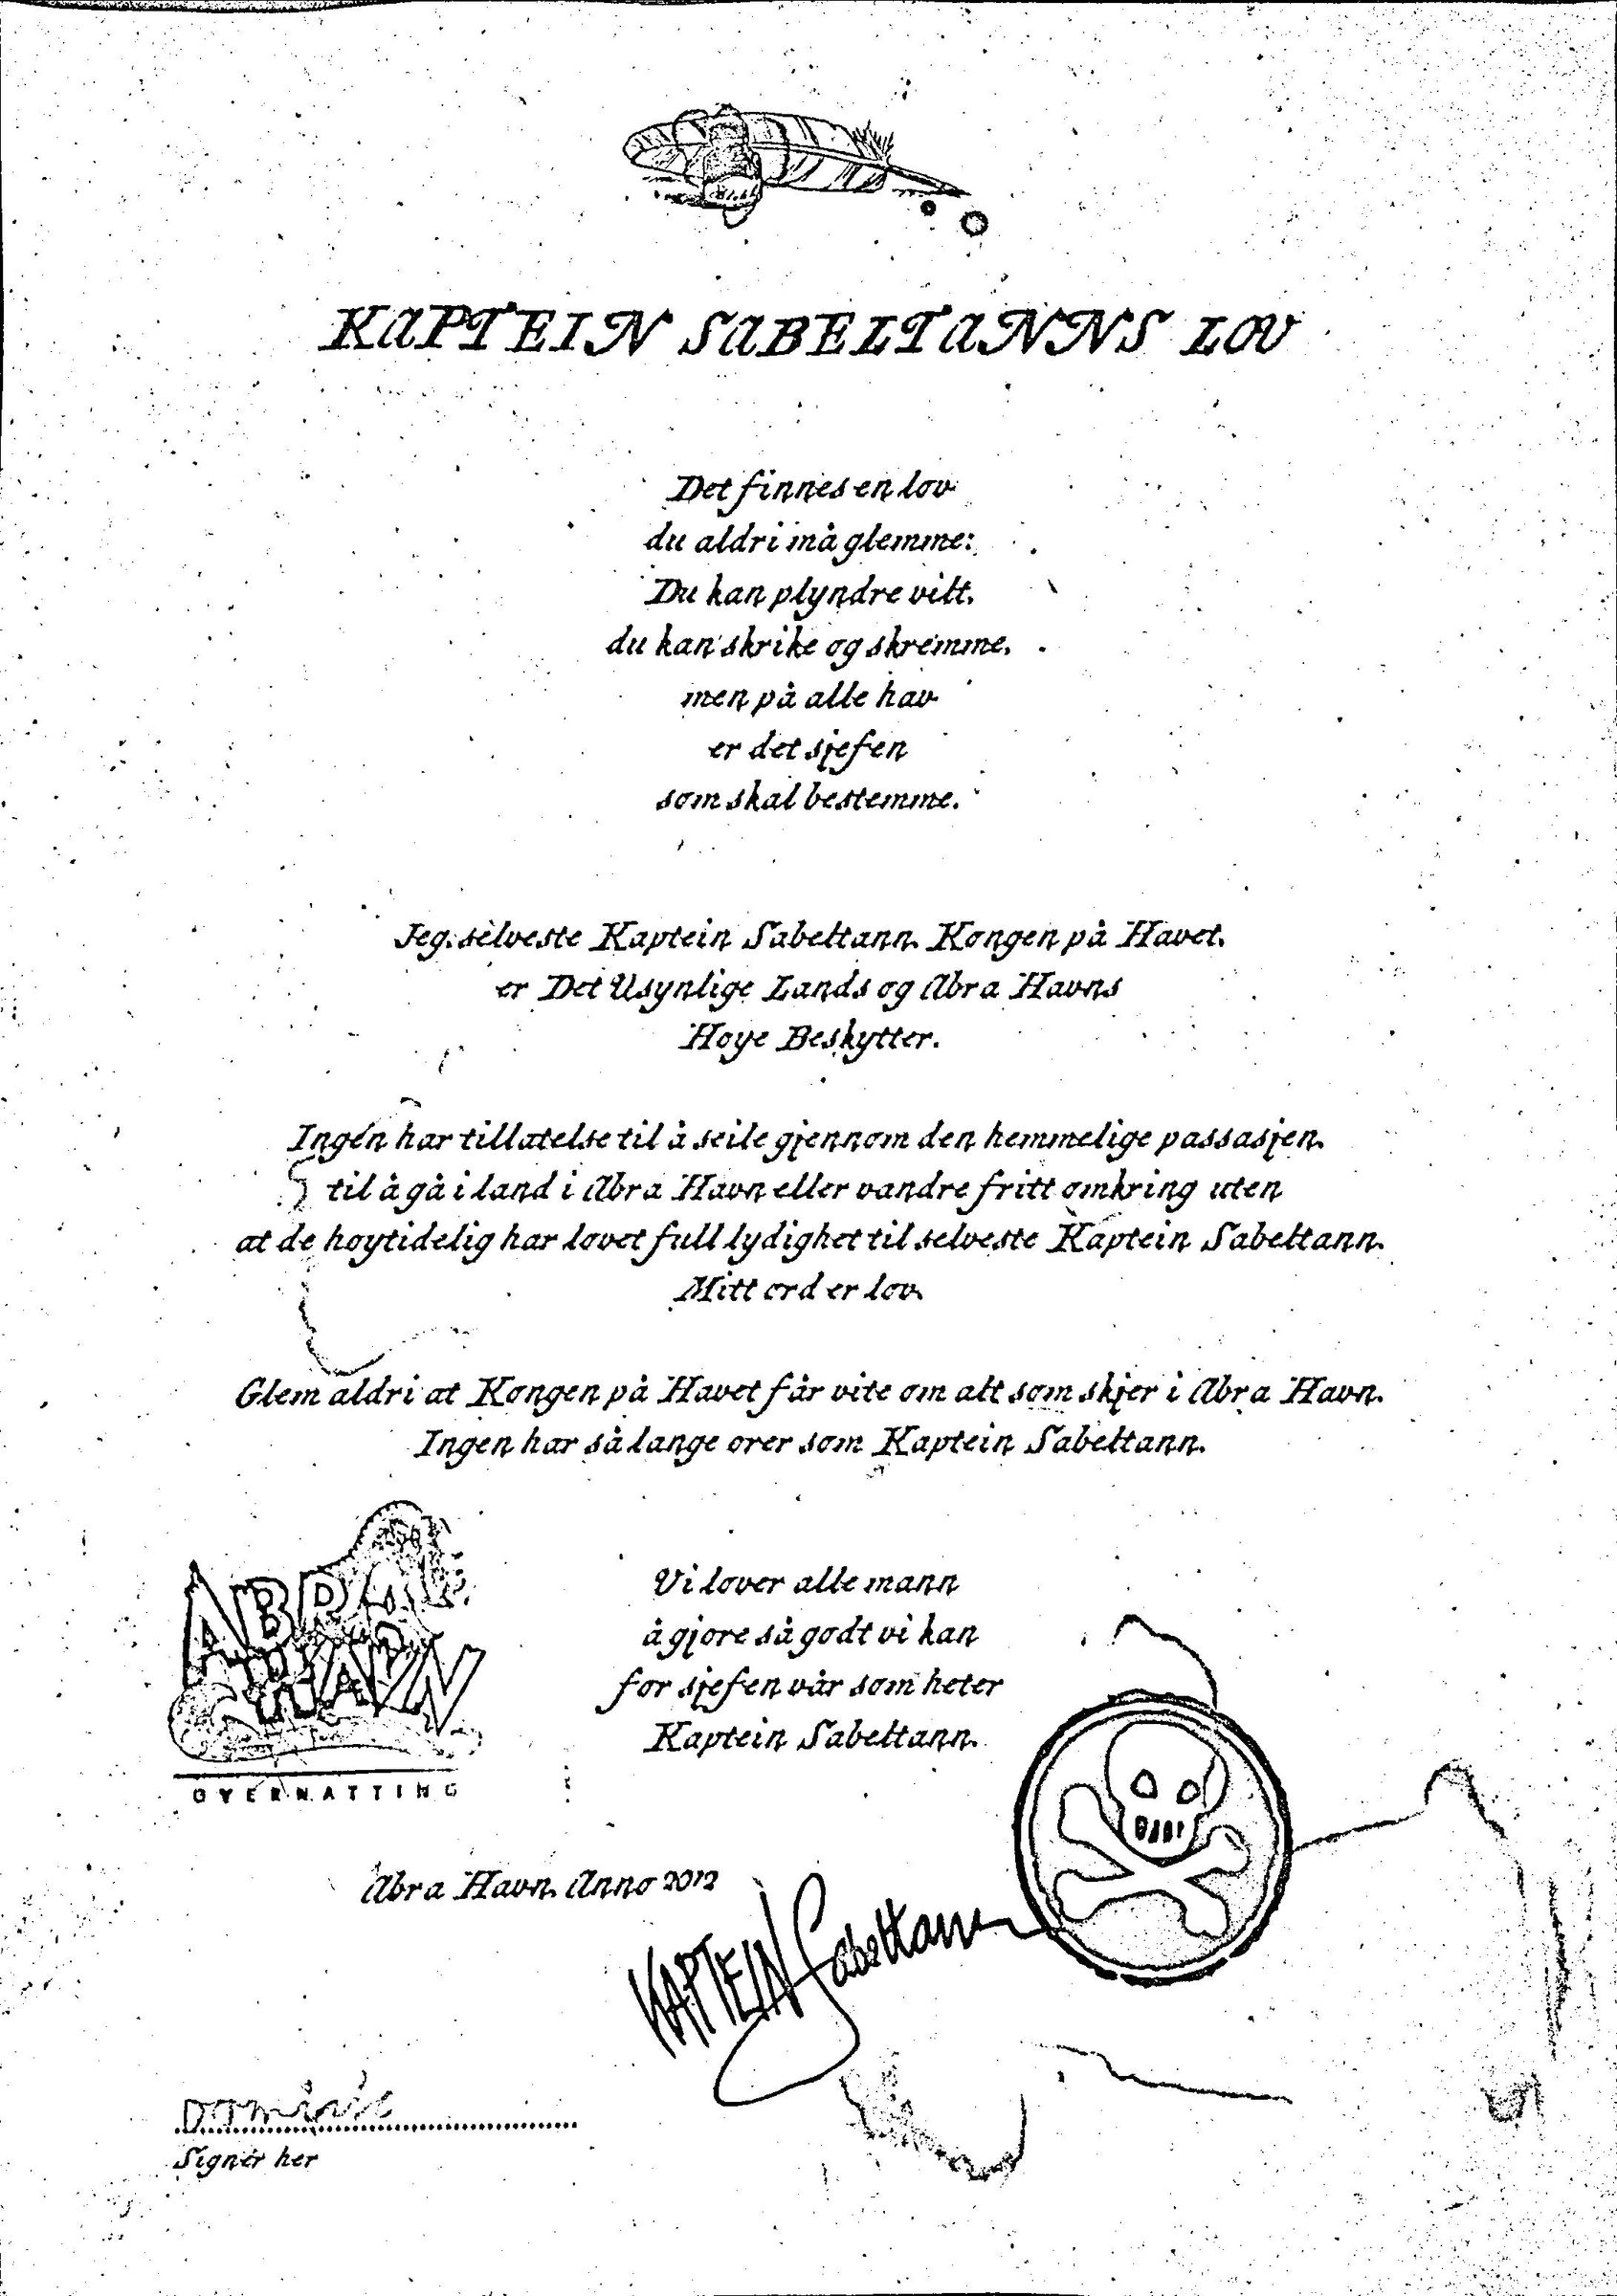 KAPTEIN SABELTANNS LOV
Det finnes en lov
du aldri må glemme:
Du kan plyndre vilt,
du kan skrike og skremme,
men på alle hav
er det sjefen
som skal bestemme.
Jeg, selveste Kaptein Sabeltann, Kongen på Havet,
er Det Usynlige Lands og Abra Havns
Hoye Beskytter.
Ingen har tillatelse til å seile gjennom den hemmelige passasjen,
til å gå i land i Abra Havn eller vandre fritt omkring uten
at de hoytidelig har lovet full lydighet til selveste Kaptein Sabeltann.
Mitt ord er lov.
Glem aldri at Kongen på Havet får vite om alt som skjer i Abra Havn.
Ingen har så lange orer som Kaptein Sabeltann.
Vi lover alle mann
å gjore så godt vi kan
for sjefen vår som heter
Kaptein Sabeltann.
ABRA
HAVN
OVERNATTING
Abra Havn, Anno 2012
KAPTEIN Sabeltann
Dominic
Signer her